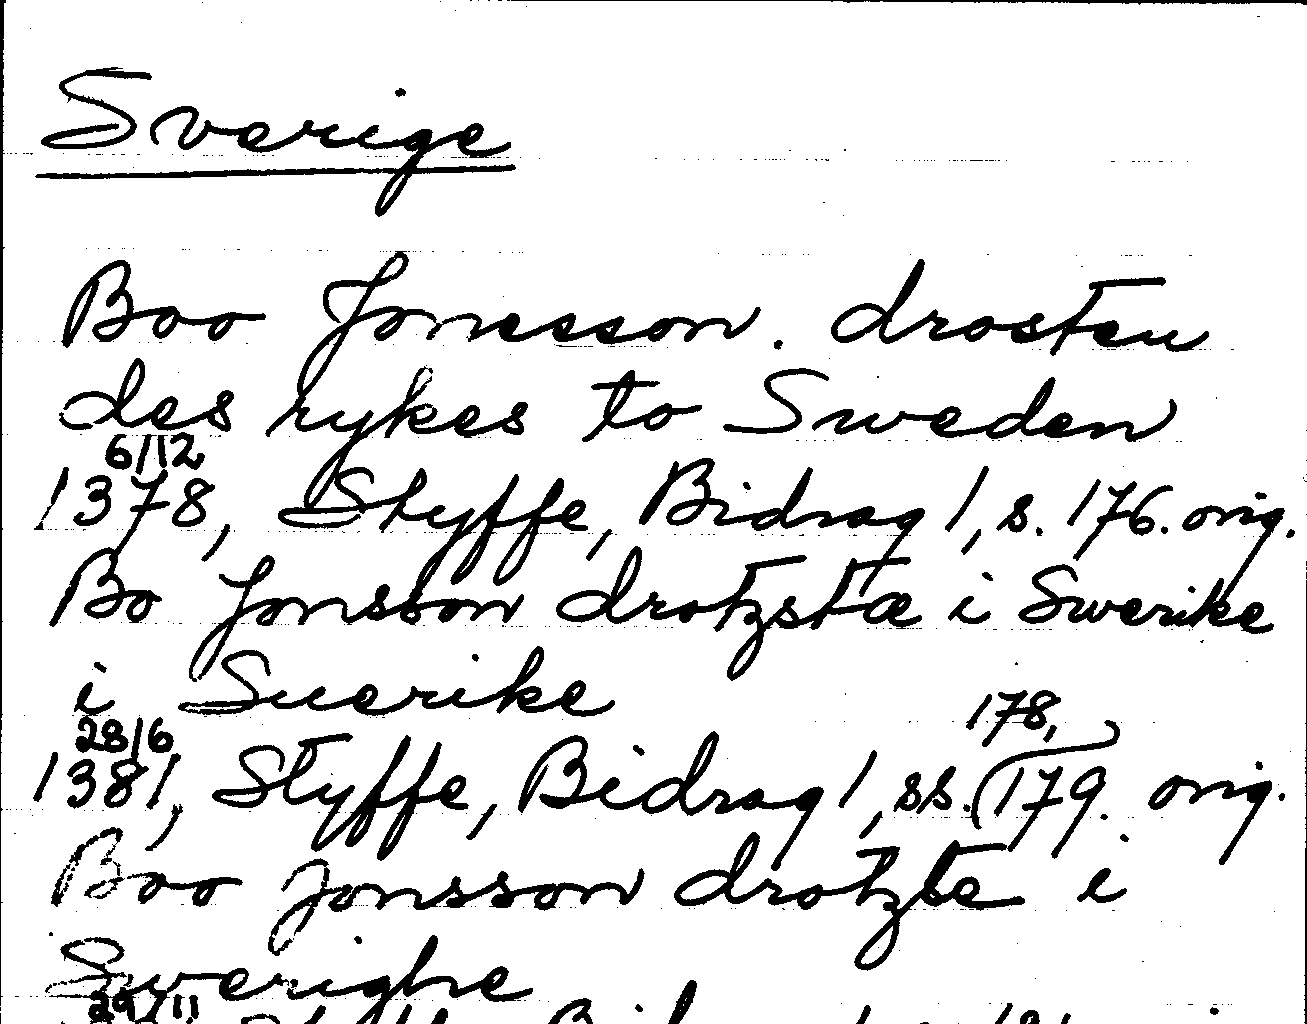 Sverige
Boo Jonesson. drosten
des rykes to Sweden
6/12
1378, Styffe, Bidrag 1, s. 176. orig.
Bo Jonsson drotzstæ i Swerike
i Suerike
28/6 178,
1381, Styffe, Bidrag 1, ss. 179. orig.
Boo Jonsson drotzte i
Swerighe
29/11